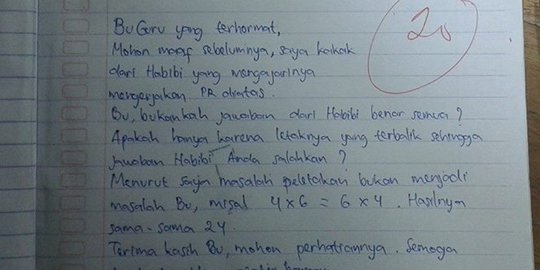 20
Bu Guru yang terhormat,
Mohon maaf sebelumnya, saya kakak
dari Habibi yang mengajarinya
mengerjakan PR diatas.
Bu, bukankah jawaban dari Habibi benar semua ?
Apakah hanya karena letaknya yang terbalik sehingga
jawaban Habibi Anda salahkan ?
Menurut saya masalah peletakan bukan menjadi
masalah Bu, misal 4 x 6 = 6 x 4 . Hasilnya
sama-sama 24
Terima kasih Bu, mohon perhatiannya. Semoga